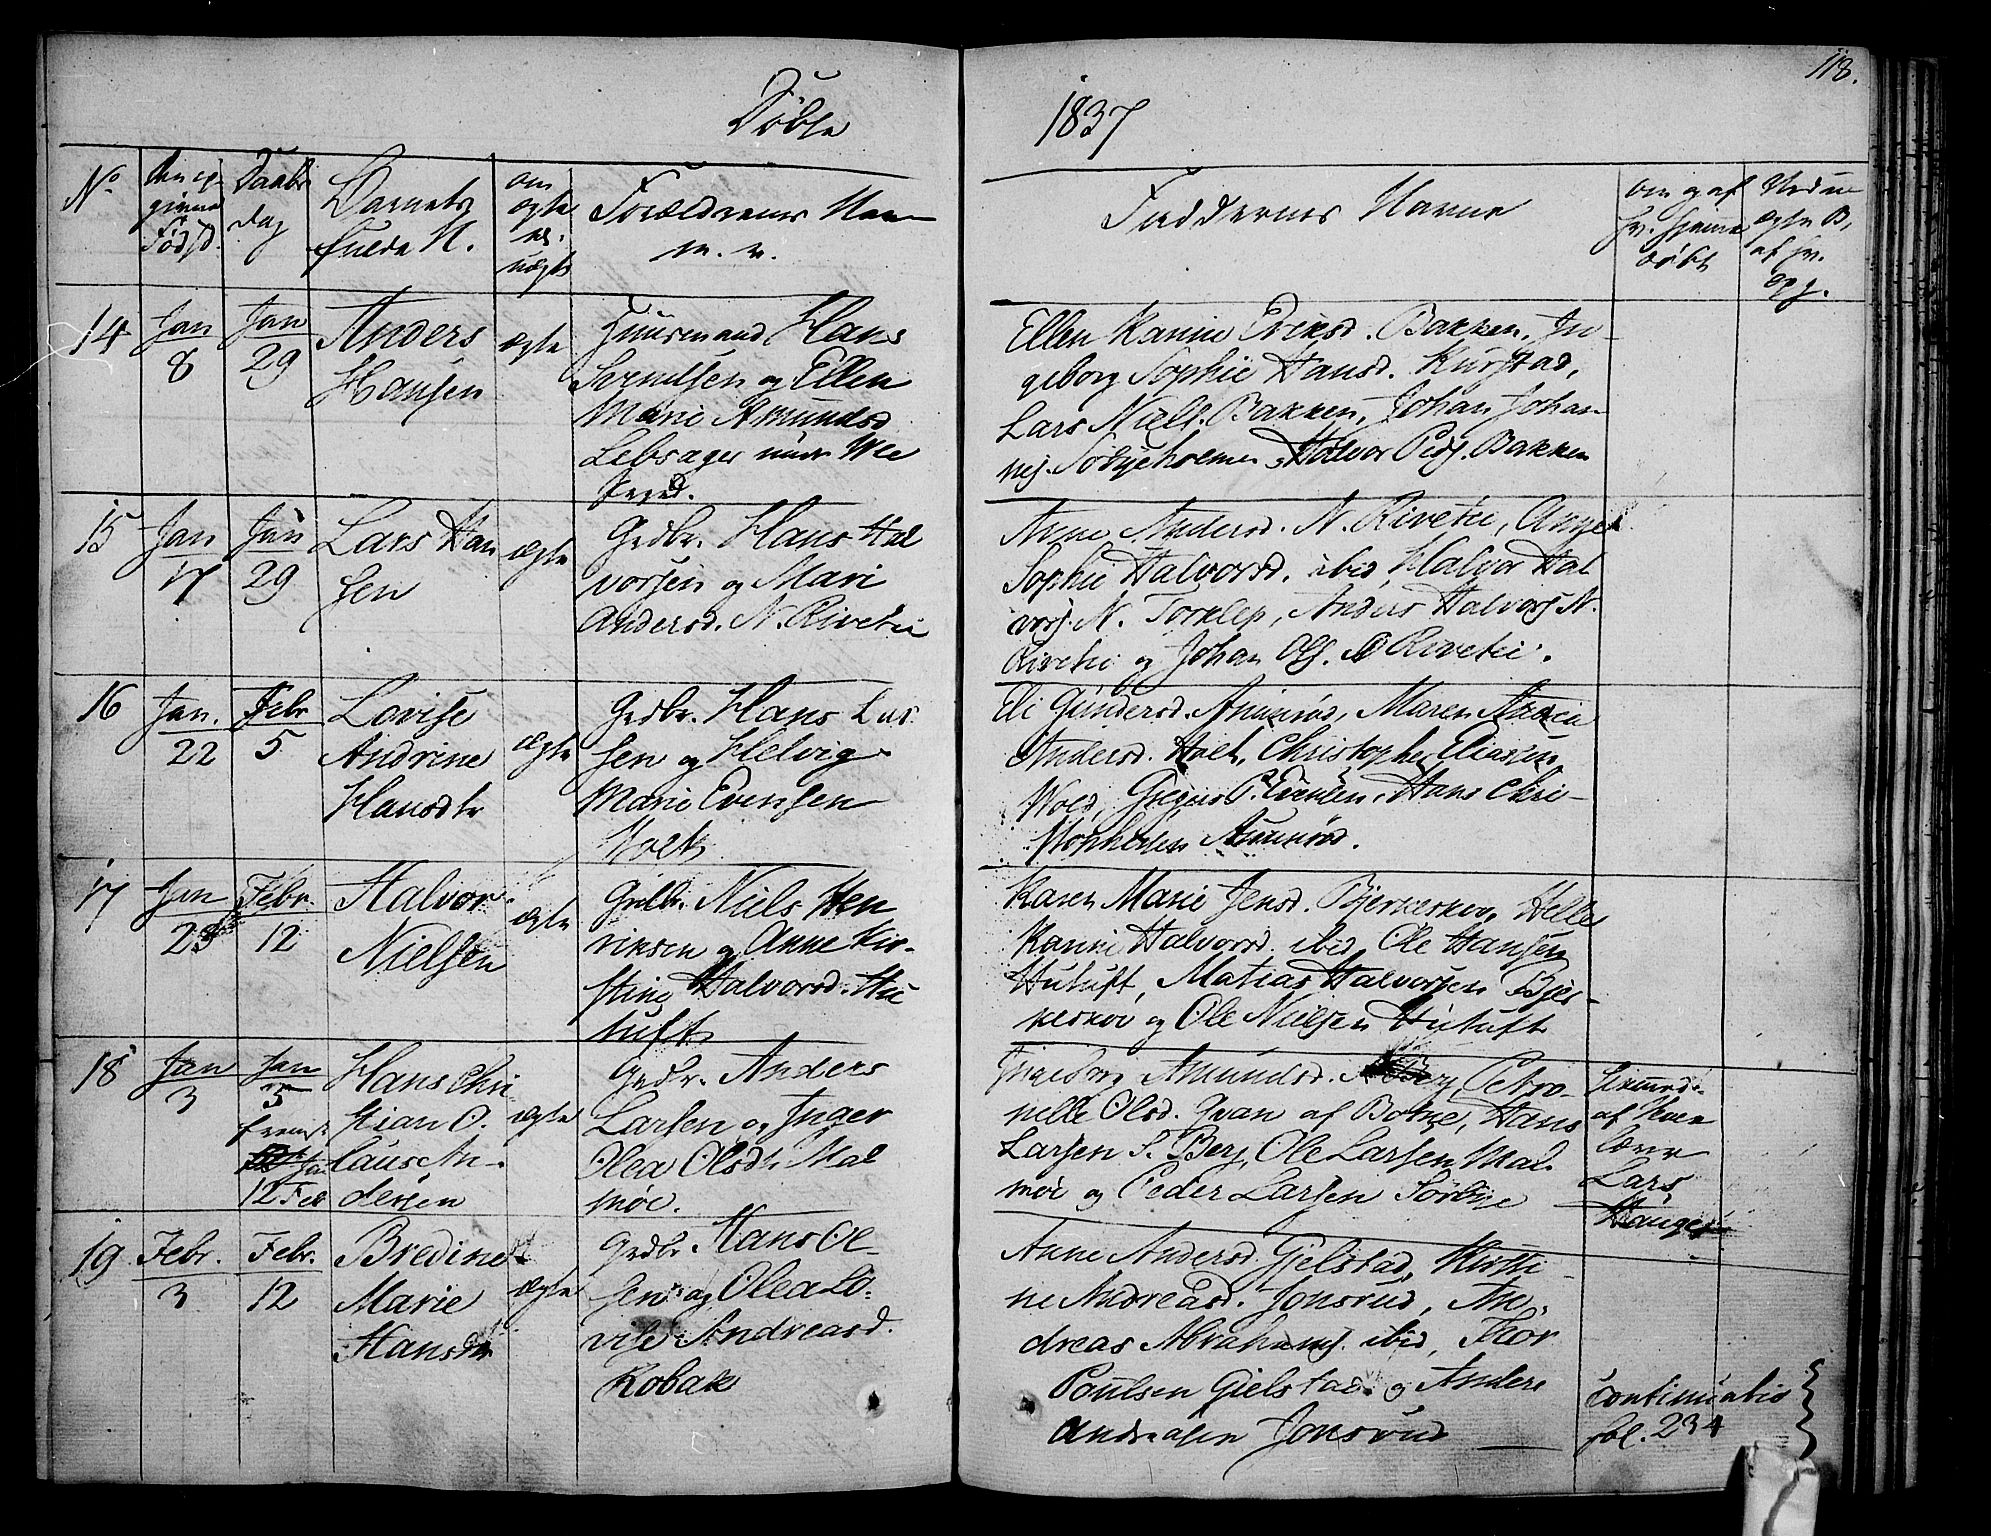 118.
Döbte
1837
No
den op
givne
Fødsd.
Daabs
dag
Barnets
fulde N.
om
ægte
el.
uægte
Forældrenes Nav
m. v.
Faddernes Navne
om og af
hv. hjemme
døbt
Ved u
ægte B.
af hv.
opg.
14
Jan
8
Jan
29
Anders
Hansen
ægte
Huusmand Hans
og Ellen
Marie Amundsd
under
Ellen Karine Eriksd. Bakken, In-
geborg Sophie Hansd.
Lars Niels. Bakken, Johan Johan
nes. Halvor Peds. Bakken
15
Jan
17
Jan
29
Lars Han
sen
ægte
Grdbr. Hans Hal
vorsen og Mari
Andersd. N. Rivetei
Anne Andersd. N. Rivetei, Anne
Sophie Halvorsd. ibid, Halvor Hal
vors. N. Torklep, Anders Halvors N.
Rivetei og Johan Ols. Rivetei.
16
Jan.
22
Febr
5
Lovise
Andrine
Hansdtr
ægte
Grdbr. Hans Lar
sen og Helvig
Marie Evensen
Holt
Eli Gundersd. Amunrød, Maren Maria
Andersd. Holt, Christopher Eliasen
Wold, P. Evensen, Hans Chri-
stophersen Amunrød.
17
Jan
23
Febr.
12
Halvor
Nielsen
ægte
Grdbr. Niels Hen
riksen og Anne Kir-
stine Halvorsd. Hu
tuft
Karen Marie Jensd. Bjerkeskov, Helle
Karine Halvorsd. ibid, Ole Hansen
Hutuft, Matias Halvorsen Bjer-
keskov og Ole Nielsen Hutuft
18
Jan
3
Jan
5
fremst.
12 Feb
Hans Chri
stian O.
laus An-
dersen
ægte
Grdbr. Anders
Larsen og Inger
Olea Olsdtr Mal
møe.
Ingeborg Amundsd. Berg, Petro-
nelle Olsd. Hvan af Botne, Hans
Larsen S. Berg, Ole Larsen Mal-
møe og Peder Larsen Sørbye
hjemmed.
af Skole
lærer
Lars
Hauger
19
Febr.
3
Febr.
12
Bredine
Marie
Hansdtr
ægte
Grdbr. Hans Ol-
sen og Olea Lo-
vise Andreasd.
Kobak
Anne Andersd. Gjelstad, Kirsti-
ne Andreasd. Jonsrud, An-
dreas Abrahams. ibid, Thor
Poulsen Gielstad og Anders
Andreasen Jonsrud
continuatio
fol. 234